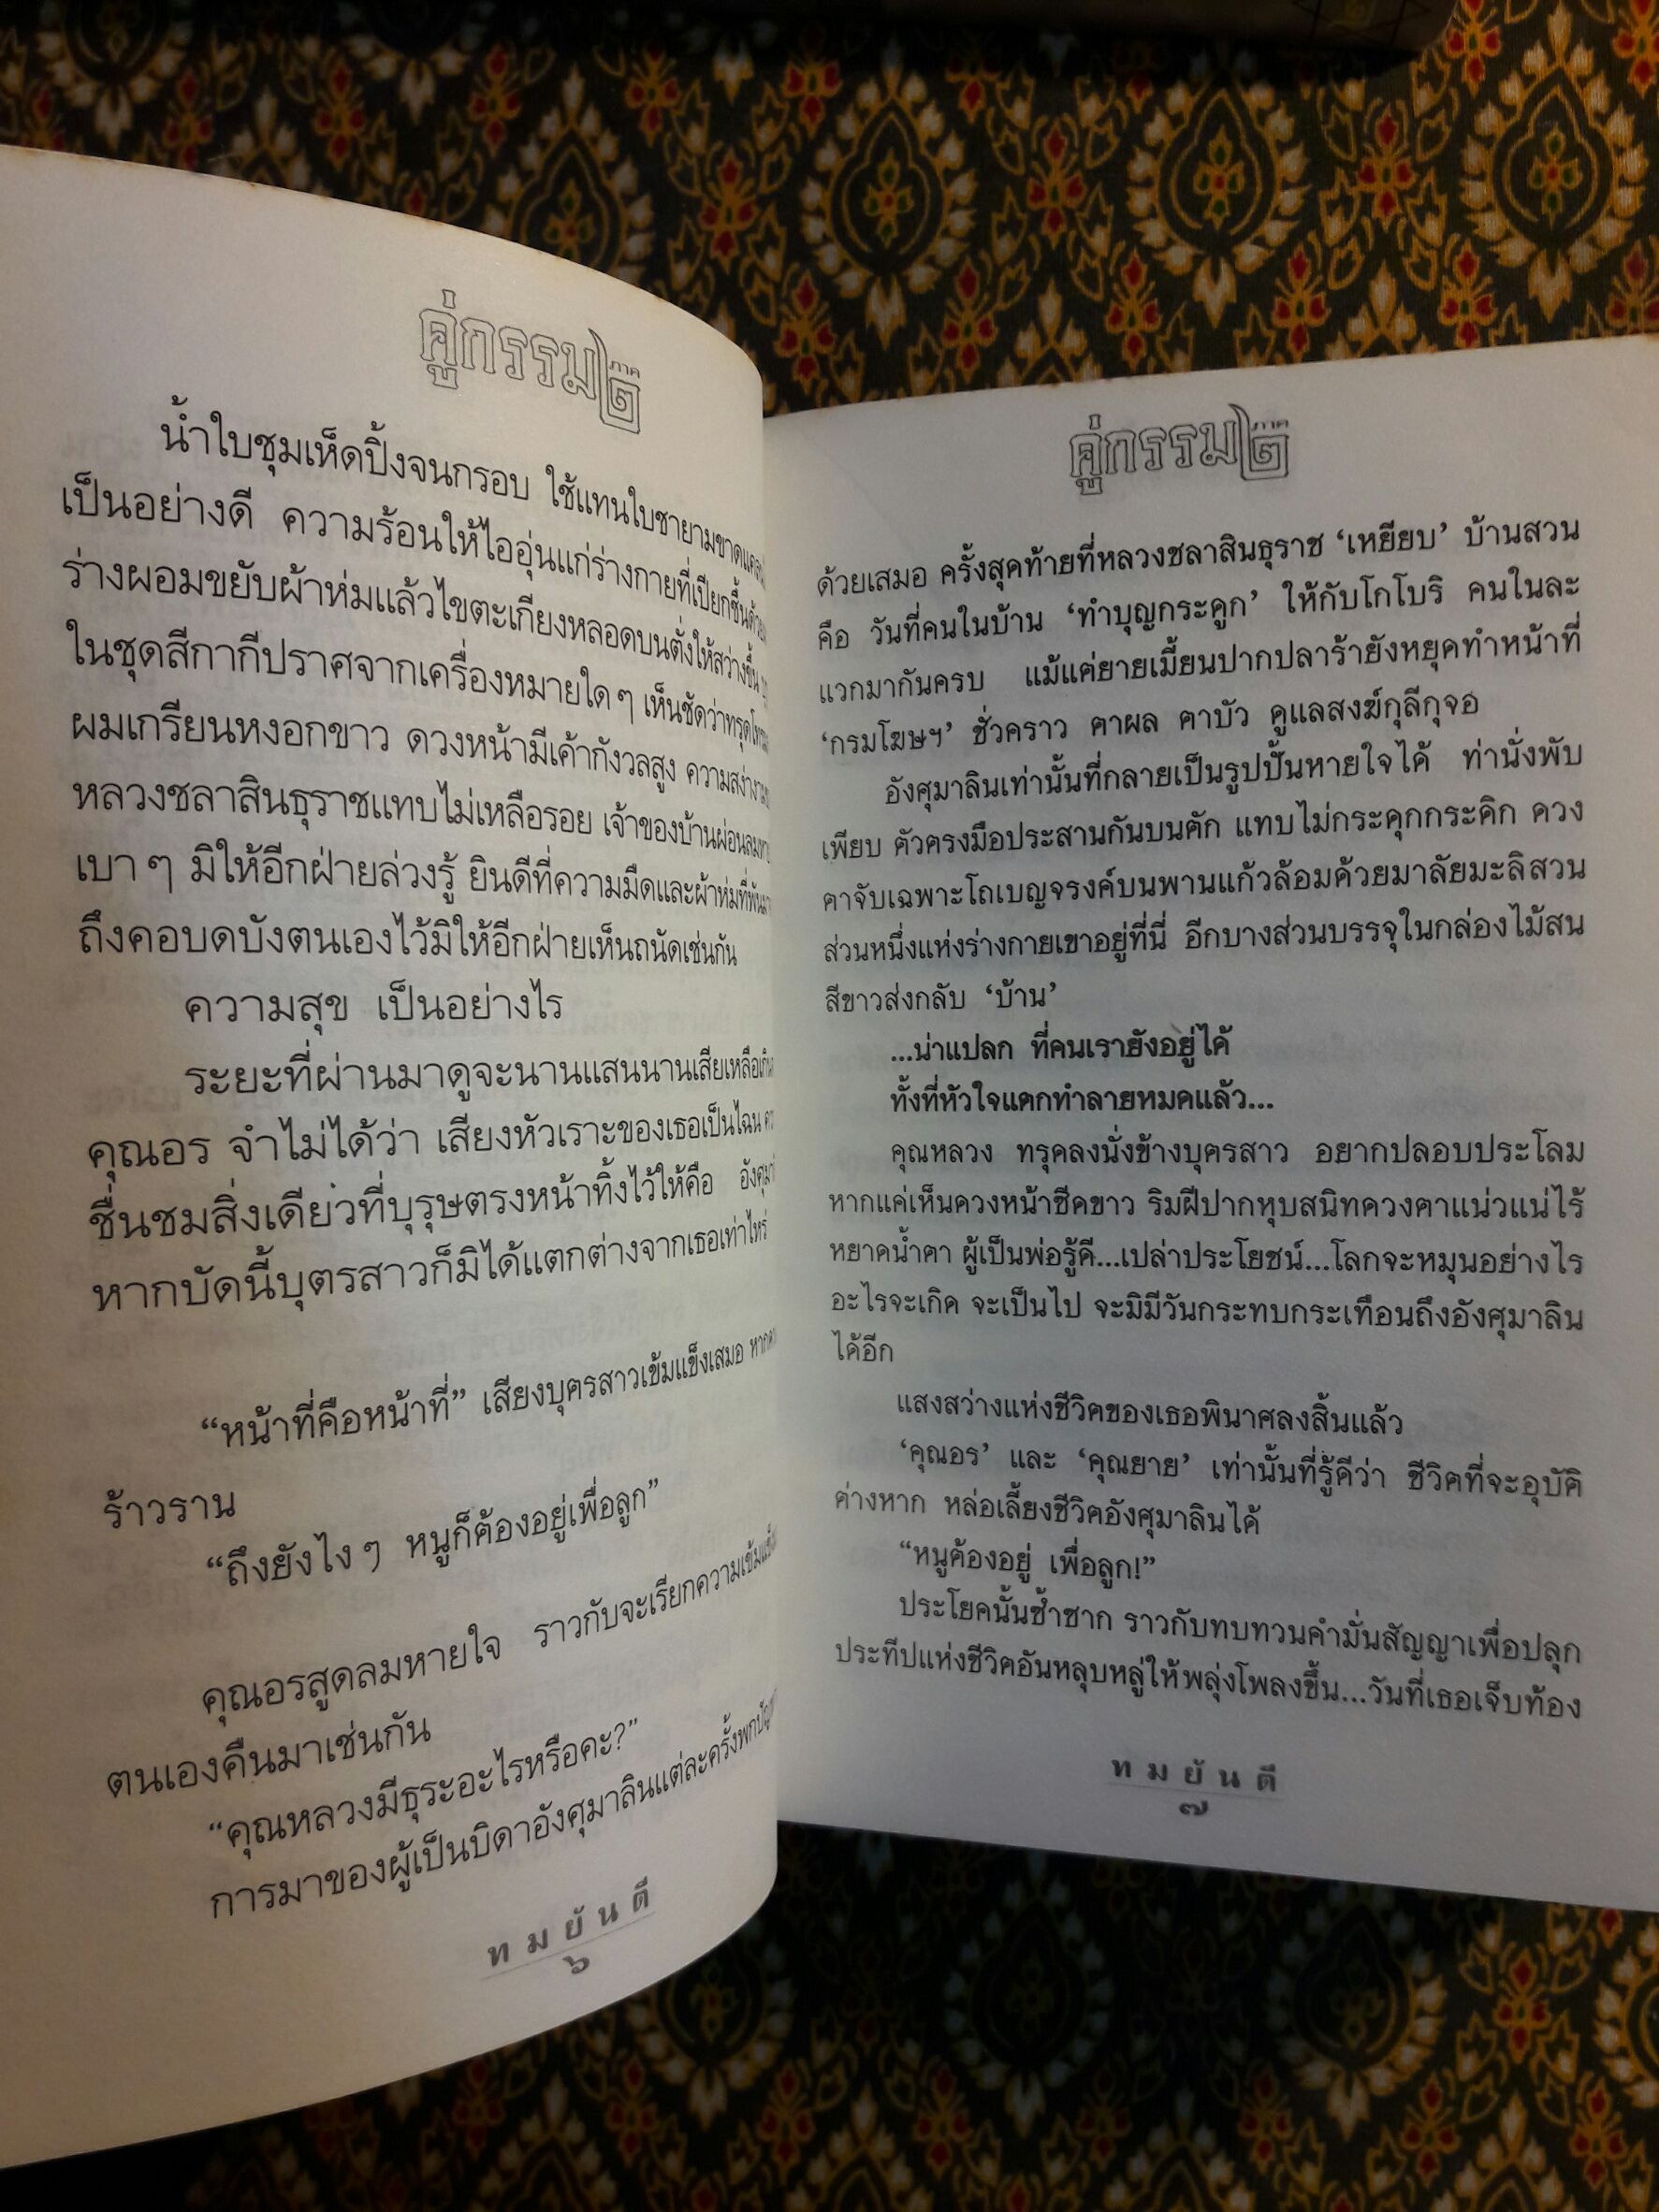 คู่กรรม ภาค ๒
น้ำใบชุมเห็ดปิ้งจนกรอบ ใช้แทนใบชายามขาดแคลน
เป็นอย่างดี ความร้อนให้ไออุ่นแก่ร่างกายที่เปียกชื้นด้วย
ร่างผอมขยับผ้าห่มแล้วไขตะเกียงหลอดบนตั่งให้สว่างขึ้น
ในชุดสีกากีปราศจากเครื่องหมายใดๆ เห็นชัดว่าทรุดโทรม
ผมเกรียนหงอกขาว ดวงหน้ามีเค้ากังวลสูง ความสง่างาม
หลวงชลาสินธุราชแทบไม่เหลือรอย เจ้าของบ้านผ่อนลมหาย
เบาๆ มิให้อีกฝ่ายล่วงรู้ ยินดีที่ความมืดและผ้าห่มที่พัน
ถึงคอบดบังตนเองไว้มิให้อีกฝ่ายเห็นถนัดเช่นกัน
ความสุข เป็นอย่างไร
ระยะที่ผ่านมาดูจะนานแสนนานเสียเหลือเกิน
คุณอร จำไม่ได้ว่า เสียงหัวเราะของเธอเป็นไฉน
ชื่นชมสิ่งเดียวที่บุรุษตรงหน้าทิ้งไว้ให้คือ อังศุมา
หากบัดนี้บุตรสาวก็มิได้แตกต่างจากเธอเท่าไหร่
“หน้าที่คือหน้าที่” เสียงบุตรสาวเข้มแข็งเสมอ หาก
ร้าวราน
“ถึงยังไงๆ หนูก็ต้องอยู่เพื่อลูก”
คุณอรสูดลมหายใจ ราวกับจะเรียกความเข้มแข็ง
ตนเองคืนมาเช่นกัน
“คุณหลวงมีธุระอะไรหรือคะ?”
การมาของผู้เป็นบิดาอังศุมาลินแต่ละครั้งพกปัญ
ทมยันตี
๖
คู่กรรม ภาค ๒
ด้วยเสมอ ครั้งสุดท้ายที่หลวงชลาสินธุราช ‘เหยียบ’ บ้านสวน
คือ วันที่คนในบ้าน ‘ทำบุญกระดูก’ ให้กับโกโบริ คนในละ
แวกมากันครบ แม้แต่ยายเมี้ยนปากปลาร้ายังหยุดทำหน้าที่
‘กรมโฆษฯ’ ชั่วคราว ตาผล ตาบัว ดูแลสงฆ์กุลีกุจอ
อังศุมาลินเท่านั้นที่กลายเป็นรูปปั้นหายใจได้ ท่านั่งพับ
เพียบ ตัวตรงมือประสานกันบนตัก แทบไม่กระดุกกระดิก ดวง
ตาจับเฉพาะโถเบญจรงค์บนพานแก้วล้อมด้วยมาลัยมะลิสวน
ส่วนหนึ่งแห่งร่างกายเขาอยู่ที่นี่ อีกบางส่วนบรรจุในกล่องไม้สน
สีขาวส่งกลับ ‘บ้าน’
...น่าแปลก ที่คนเรายังอยู่ได้
ทั้งที่หัวใจแตกทำลายหมดแล้ว...
คุณหลวง ทรุดลงนั่งข้างบุตรสาว อยากปลอบประโลม
หากแค่เห็นดวงหน้าซีดขาว ริมฝีปากหุบสนิทดวงตาแน่วแน่ไร้
หยาดน้ำตา ผู้เป็นพ่อรู้ดี...เปล่าประโยชน์...โลกจะหมุนอย่างไร
อะไรจะเกิด จะเป็นไป จะมิมีวันกระทบกระเทือนถึงอังศุมาลิน
ได้อีก
แสงสว่างแห่งชีวิตของเธอพินาศลงสิ้นแล้ว
‘คุณอร’ และ ‘คุณยาย’ เท่านั้นที่รู้ดีว่า ชีวิตที่จะอุบัติ
ต่างหาก หล่อเลี้ยงชีวิตอังศุมาลินได้
“หนูต้องอยู่ เพื่อลูก!”
ประโยคนั้นซ้ำซาก ราวกับทบทวนคำมั่นสัญญาเพื่อปลุก
ประทีปแห่งชีวิตอันหลุบหลู่ให้พลุ่งโพลงขึ้น...วันที่เธอเจ็บท้อง
ทมยันตี
๗